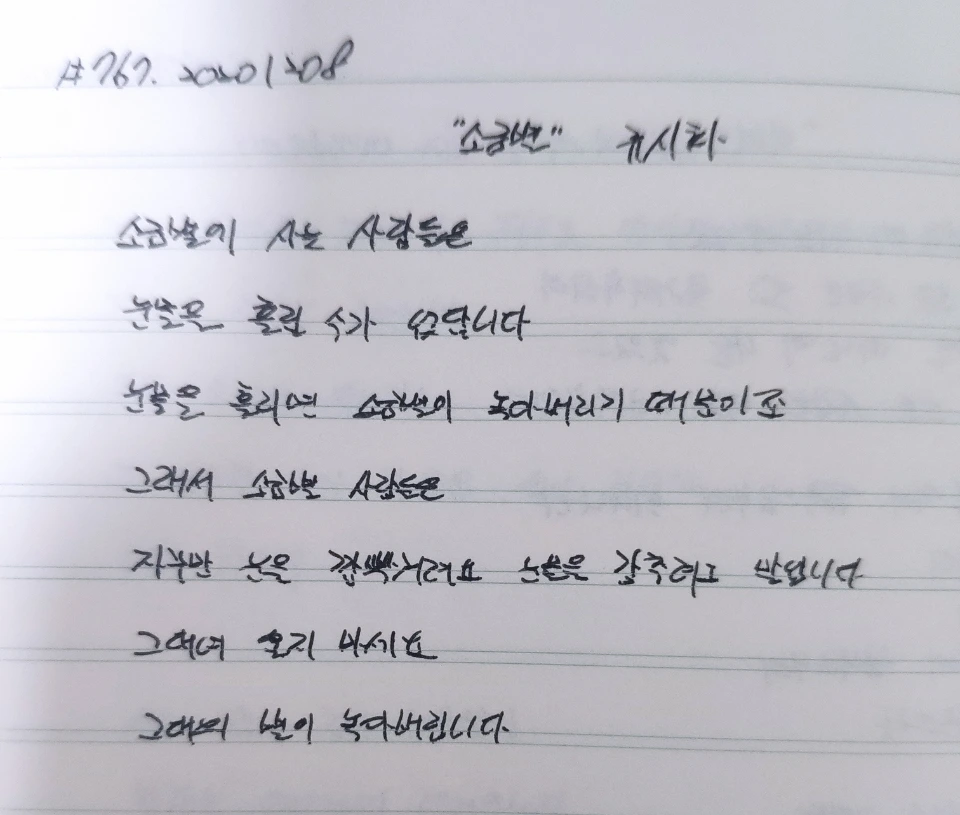 #767. 20201208
"소금별" 류시화
소금별에 사는 사람들은
눈물을 흘릴 수가 없답니다
눈물을 흘리면 소금별이 녹아버리기 때문이죠
그래서 소금별 사람들은
자꾸만 눈을 깜빡거려요 눈물을 감추려고 말입니다
그대여 울지 마세요
그대의 별이 녹아버립니다